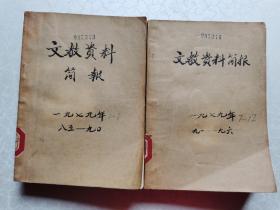 文教资料
简报
一九七九年
八五—九〇
文教资料简报
一九七九年 7-12
九一—九六